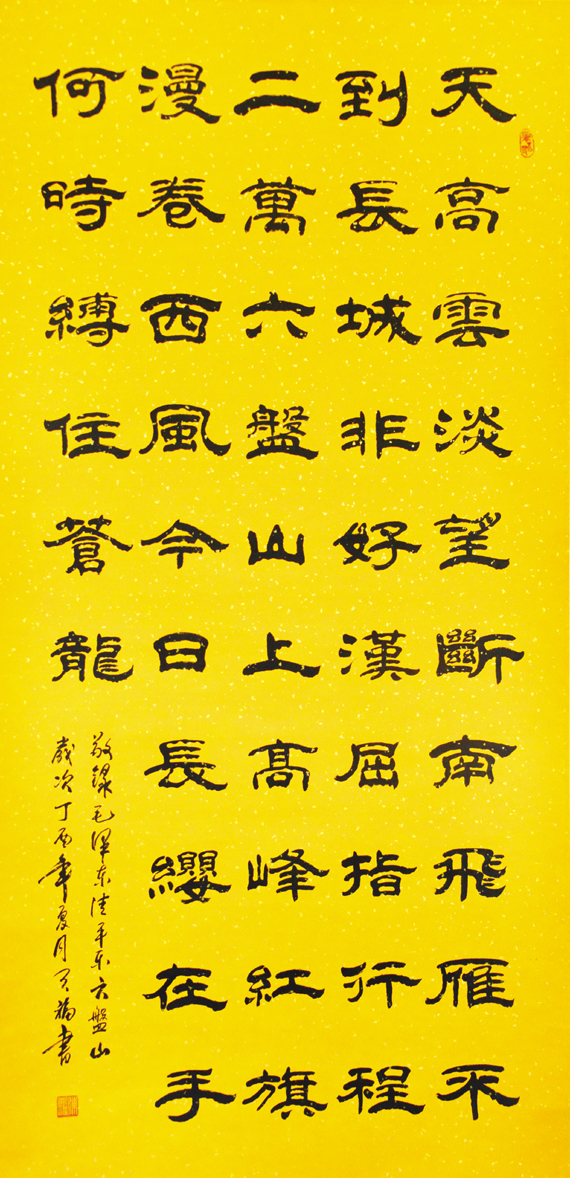 天高雲淡望斷南飛雁不
到長城非好漢屈指行程
二萬六盤山上高峰紅旗
漫卷西風今日長纓在手
何時縛住蒼龍
敬錄毛澤东清平乐六盤山
歲次丁酉年夏月福書